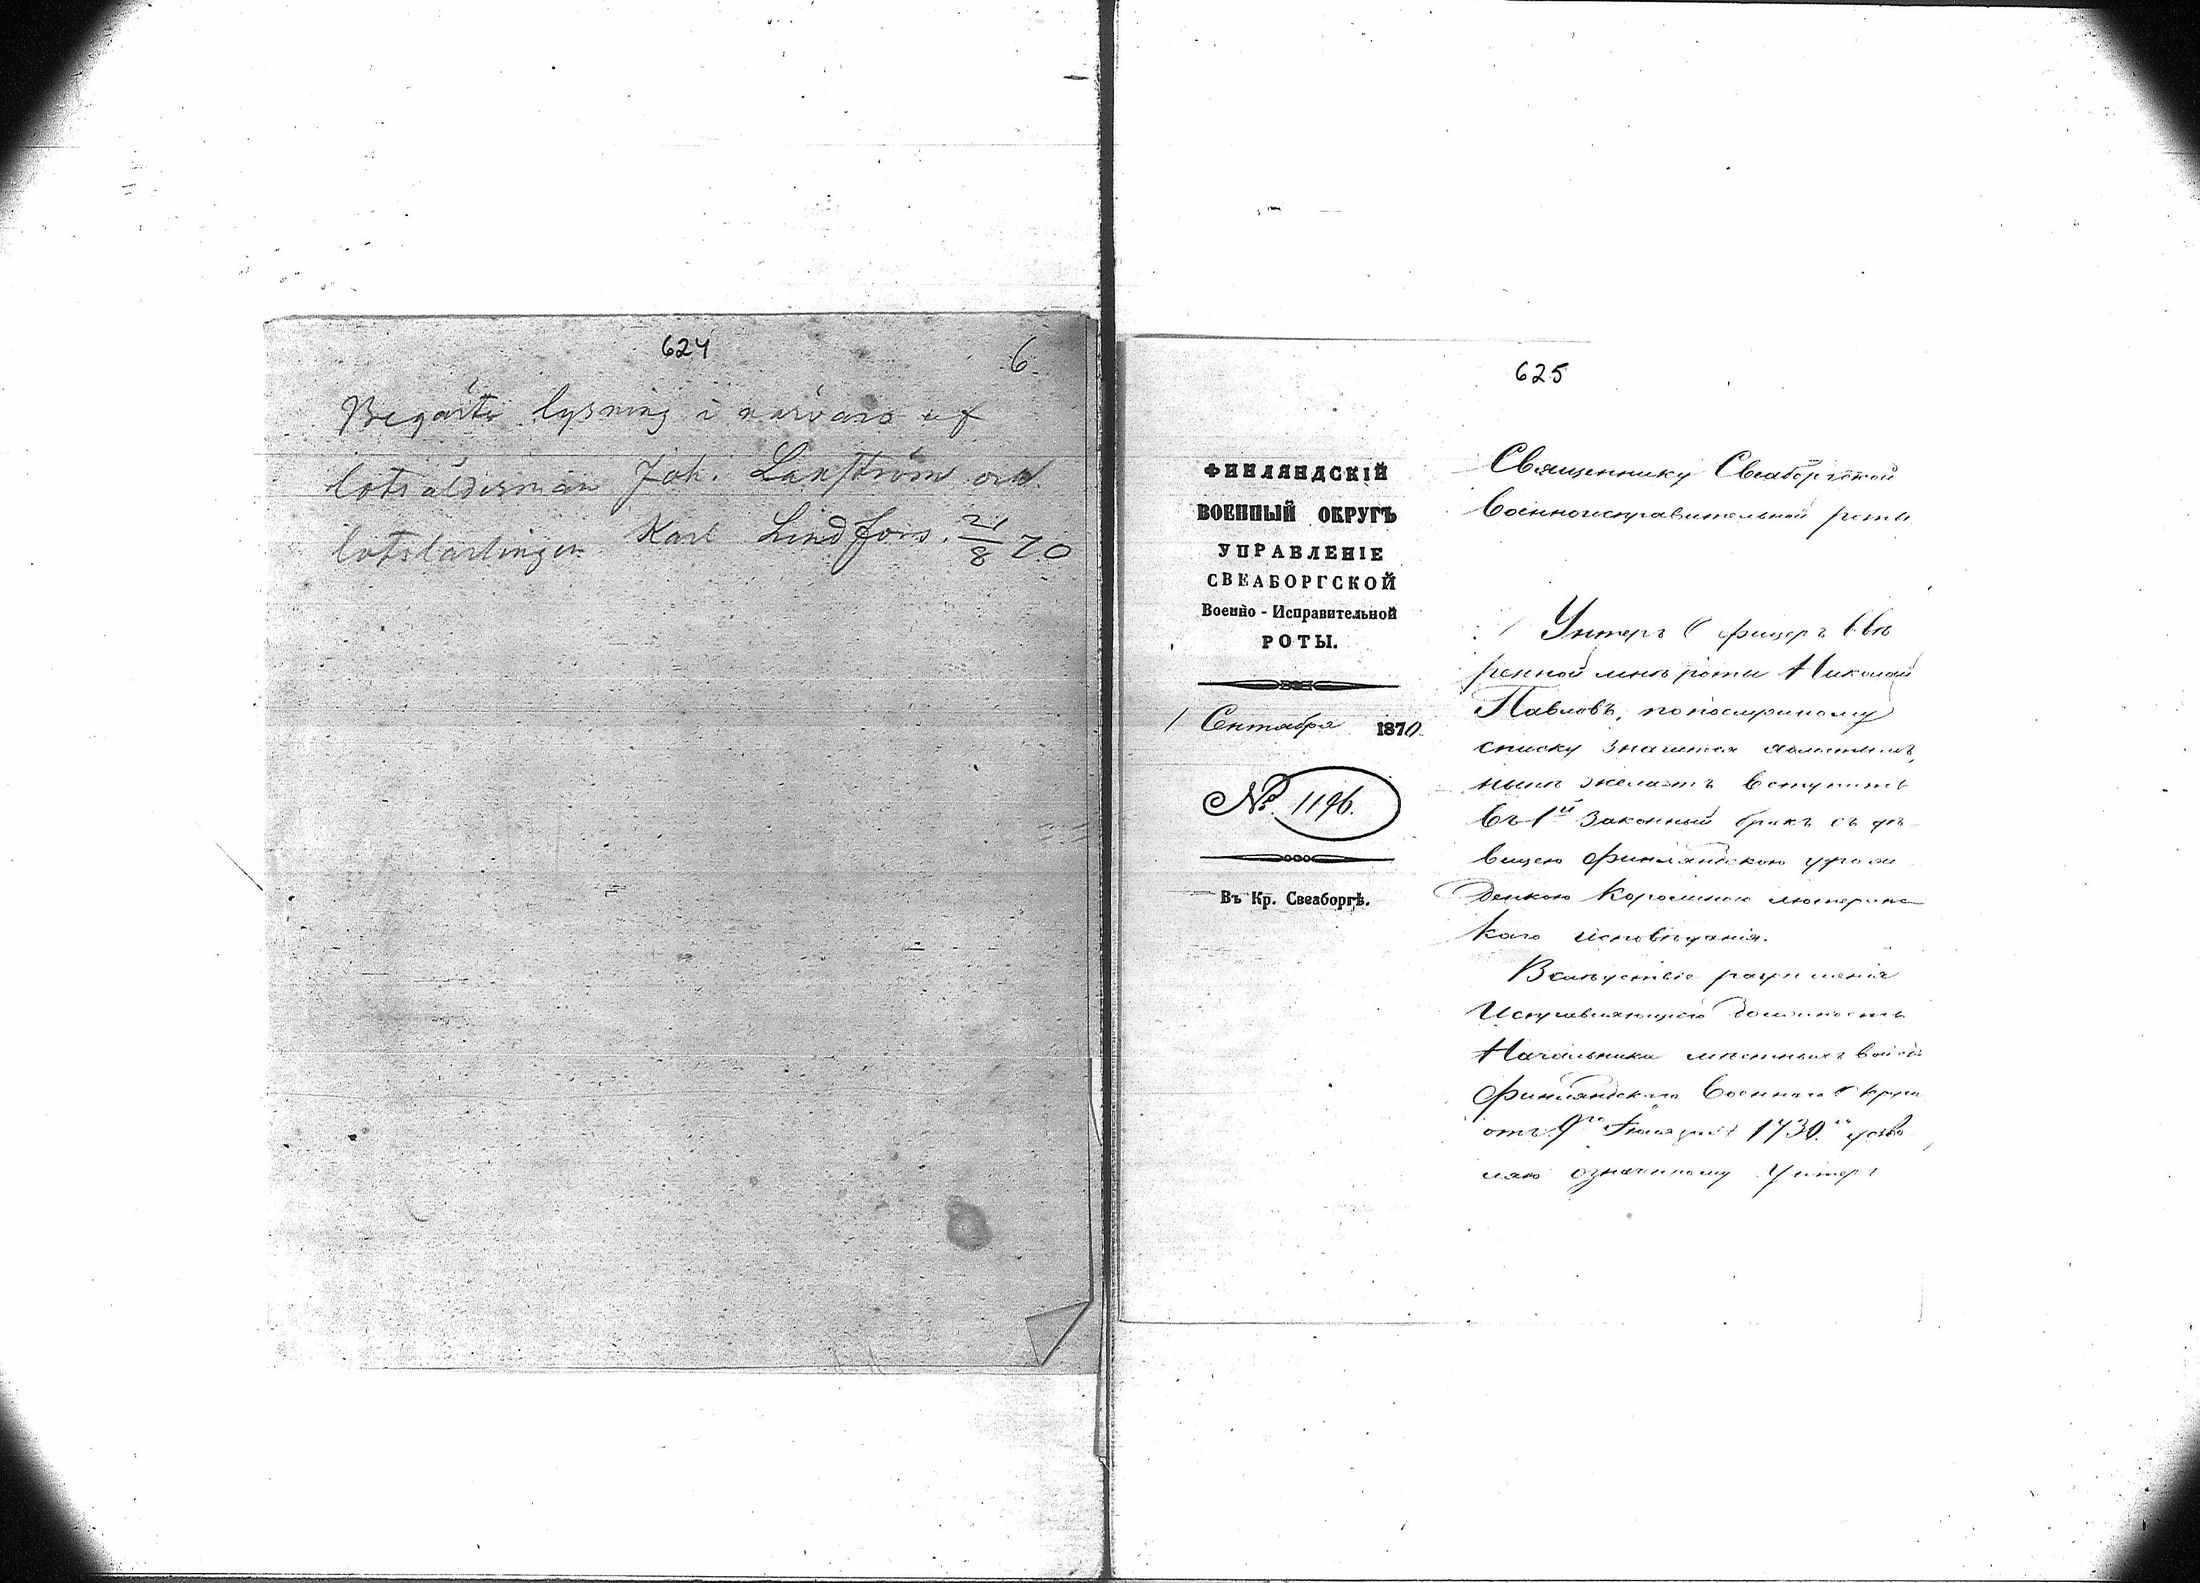 624
6.
Begärts lysning i närvaro af
lotsåldesman Joh. Lanström och
lotslärlingen Karl Lindfors. 21/8 70
625
ФИНЛЯНДСКІЙ
ВОЕННЫЙ ОКРУГЪ
УПРАВЛЕНІЕ
СВЕАБОРГСКОЙ
Военно - Исправительной
РОТЫ.
1 Сентября 1870.
№ 1196.
Въ Кр. Свеаборгѣ.
Священнику Свеаборгской
Военноисправительной роты
Унтеръ Офицеръ ввѣ
ренной мнѣ роты Николай
Павловъ, по послужному
списку значится холостымъ,
нынѣ желаетъ вступить
въ 1й законный бракъ съ дѣ
вицею Финляндскою уро
денкою лютеранс
каго исповѣданія.
Вслѣдствіе разрѣшенія
Исправляющаго должность
Начальника мѣстныхъ войскъ
Финляндскаго Военнаго Округа
отъ 9го 1730.
ляю означенному Унтеръ